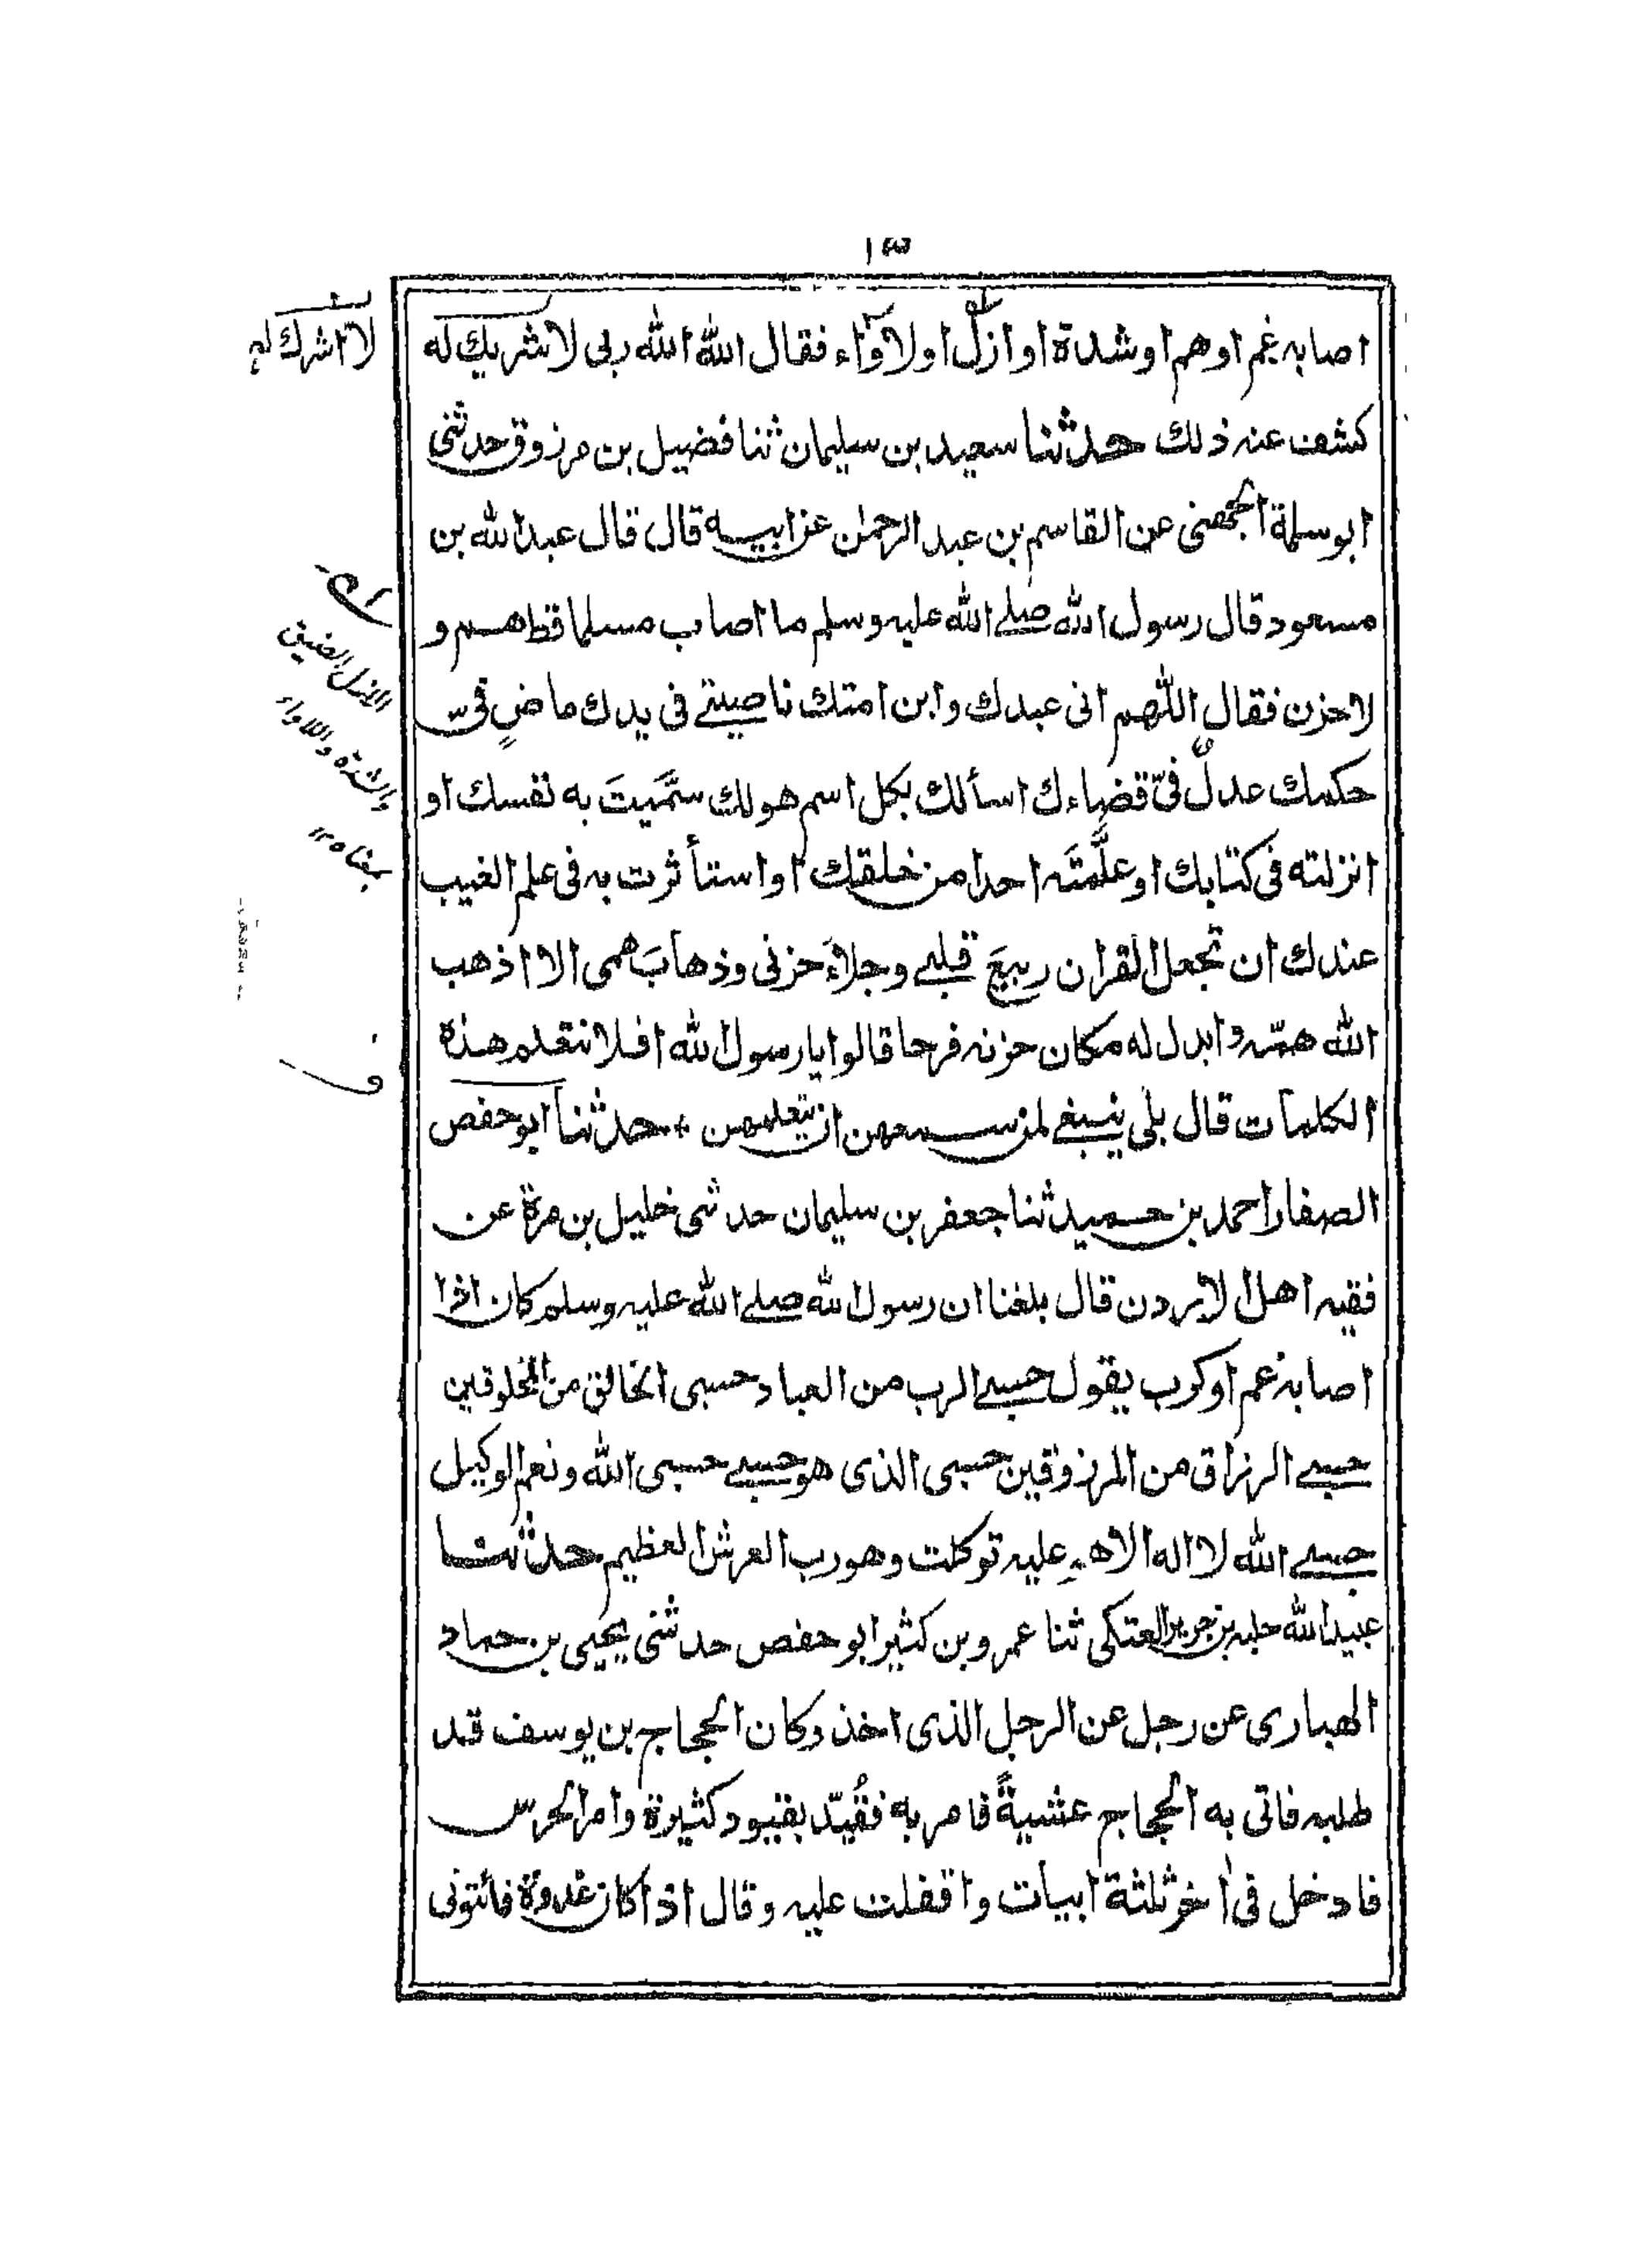 ١٣
اصابه غم او هم او شدة او ازل او لاواء فقال الله الله ربى لا شريك له
كشف عنه ذلك حدثنا سعيد بن سليمان ثنا فضيل بن مرزوق حدثنى
ابو سلمة الجهنى عن القاسم بن عبد الرحمٰن عن ابيه قال قال عبد الله بن
مسعود قال رسول الله صلے الله عليه وسلم ما اصاب مسلما قط هم و
لا حزن فقال اللٰهم انى عبدك وابن امتك ناصيتے فى يدك ماضٍ فىّ
حكمك عدلٌ فىّ قضاءك اسألك بكل اسم هو لك سمَّيتَ به نفسك او
انزلته فى كتابك او علَّمتَه احدا من خلقك او استأثرت به فى علم الغيب
عندك ان تجعل القران ربيعَ قلبے وجلاءَ حزنى وذهابَ همى الا اذهب
الله همّه وابدل له مكان حزنه فرحا قالوا يا رسول الله افلا نتعلم هذه
الكلمات قال بلى ينبغے لمن سمعهن ان يتعلمهن + حدثنا ابو حفص
الصفار احمد بن حميد ثنا جعفر بن سليمان حدثنى خليل بن مرة عن
فقيه اهل الاردن قال بلغنا ان رسول الله صلے الله عليه وسلم كان اذا
اصابه غم او كرب يقول حسبے الرب من العباد حسبى الخالق من المخلوقين
حسبے الرزاق من المرزوقين حسبى الذى هو حسبے حسبى الله ونعم الوكيل
حسبے الله لا اله الا هو عليه توكلت وهو رب العرش العظيم حدثنا
عبيد الله بن جرير العتكى ثنا عمرو بن كثير ابو حفص حدثنى يحيى بن حماد
الهبارى عن رجل عن الرجل الذى اخذ وكان الحجاج بن يوسف قد
طلبه فاتى به الحجاج عشيةً فامر به فقُيّد بقيود كثيرة وامر الحرس
فادخل فى اٰخر ثلثة ابيات واقفلت عليه وقال اذا كان غدوة فائتونى
لا اشرك له
الازل الضيق
والشدة واللاواء
بمعناه ١٢